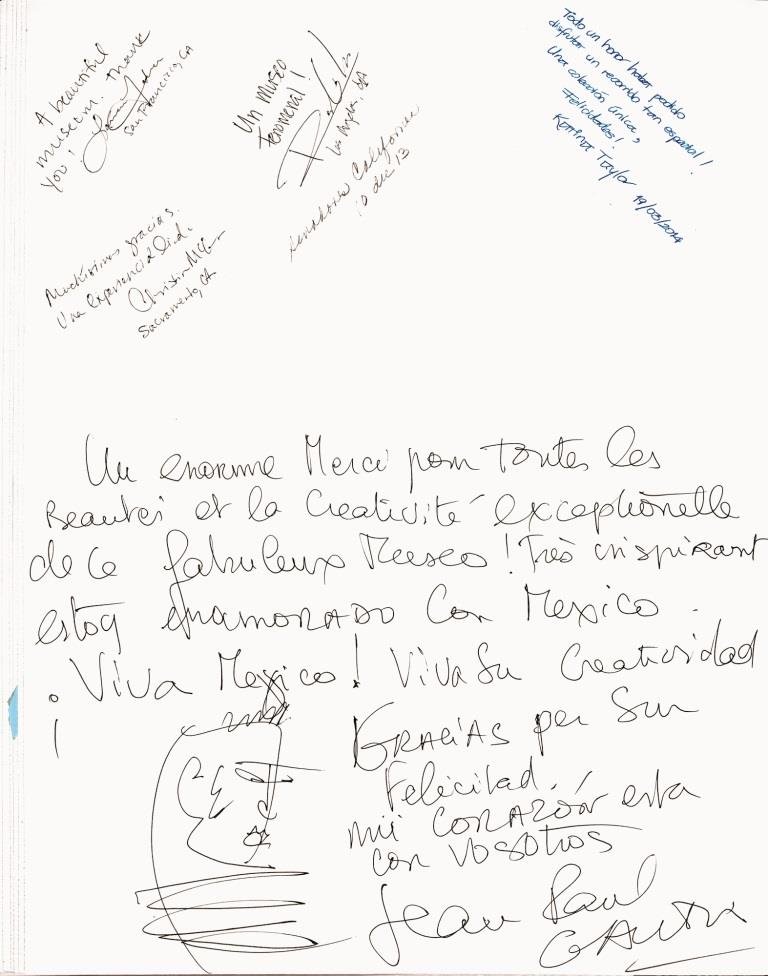 A beautiful
museum. Thank
you!
San Francisco, CA
Un museo
fenomenal!
Los Angeles, CA
Senadores California
10 dic 13
Todo un honor haber podido
disfrutar un recorrido tan especial!
Una colección única,
Felicidades!
Katrina Taylor 19/03/2014
Muchísimas gracias.
Una experiencia
Sacramento, CA
Un enorme Merci pour toutes les
Beautés et la Creativité exceptionelle
de ce fabuleux Museo! Très inspirant
estoy enamorado con Mexico.
¡Viva Mexico! Viva Su Creatividad
¡
GRACIAS por Sun
Felicitad.
mii CORAZÓN esta
con VOSOTROS
Jean Paul
GAULTIER